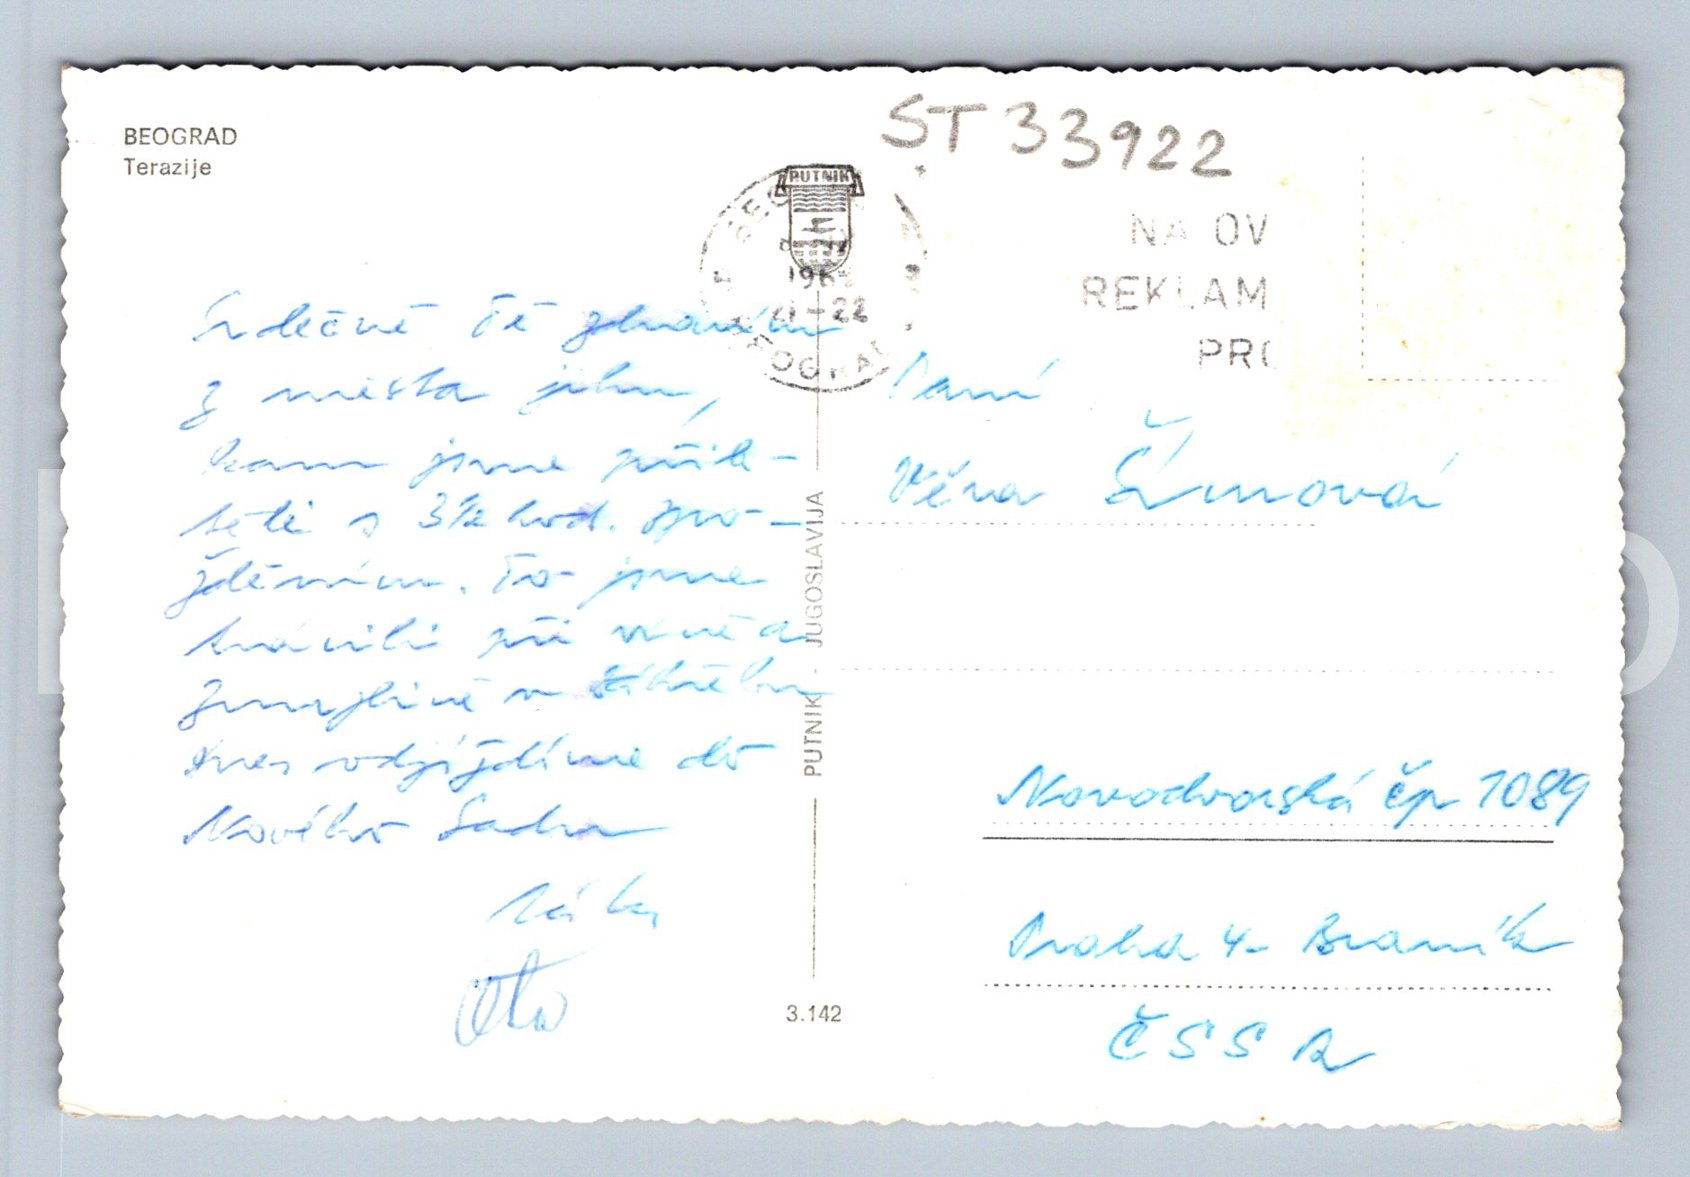 BEOGRAD
Terazije
ST 33922
PUTNIK
BEOGRAD
196
21-22
BEOGRAD
NA OV
REKLAM
PRO
Srdečně Tě zdravím
z města jihu,
kam jsme přile-
těli s 3½ hod. zpo-
žděním. To jsme
trávili při víně a
v Záhřebu
dnes odjíždíme do
Nového Sadu
Oto
PUTNIK - JUGOSLAVIJA
3.142
Paní
Věra Šímová
Novodvorská čp 1089
Praha 4 - Braník
ČSSR